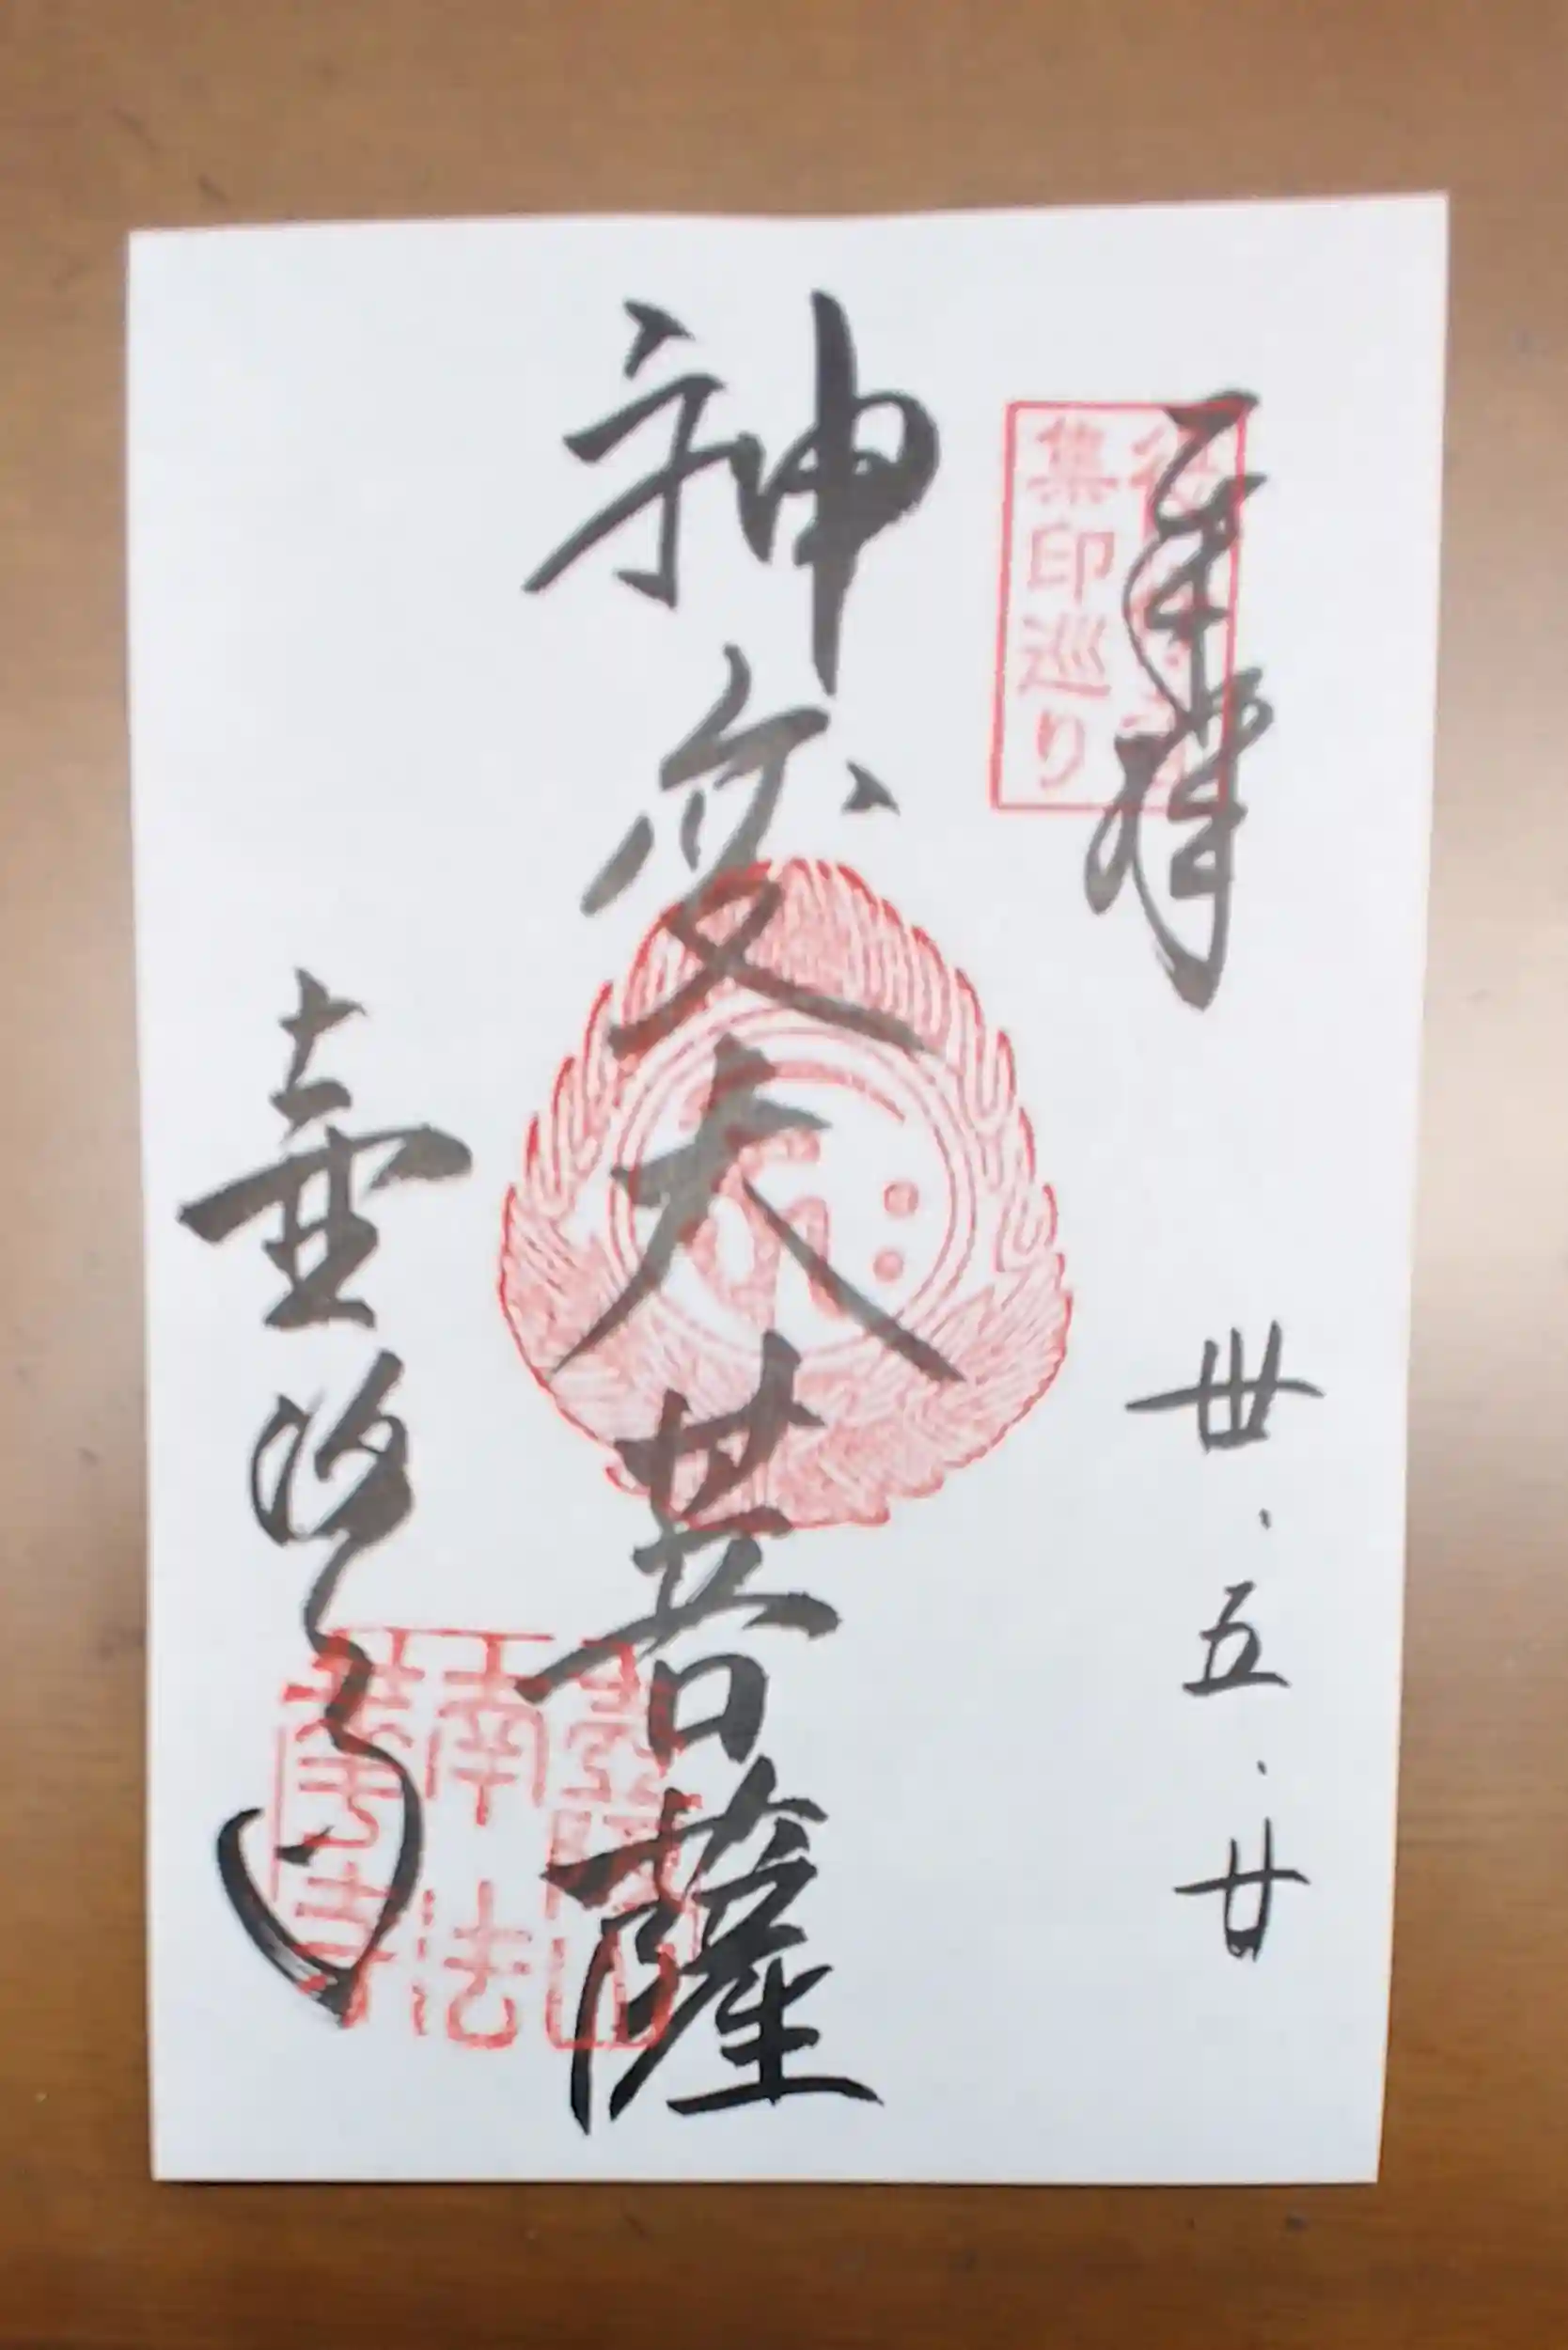 奉拝
集印巡り
丗・五・廿
神変大菩薩
壷阪寺
南法